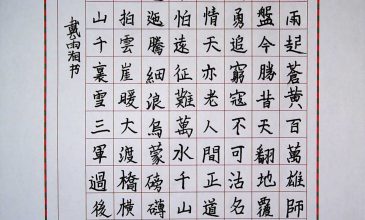 雨起蒼黃百萬雄師
盤今勝昔天翻地覆
勇追窮寇不可沽名
情天亦老人間正道
怕遠征難萬水千山
迤騰細浪烏蒙磅礴
拍雲崖暖大渡橋橫
山千裏雪三軍過後
戴雨湘书